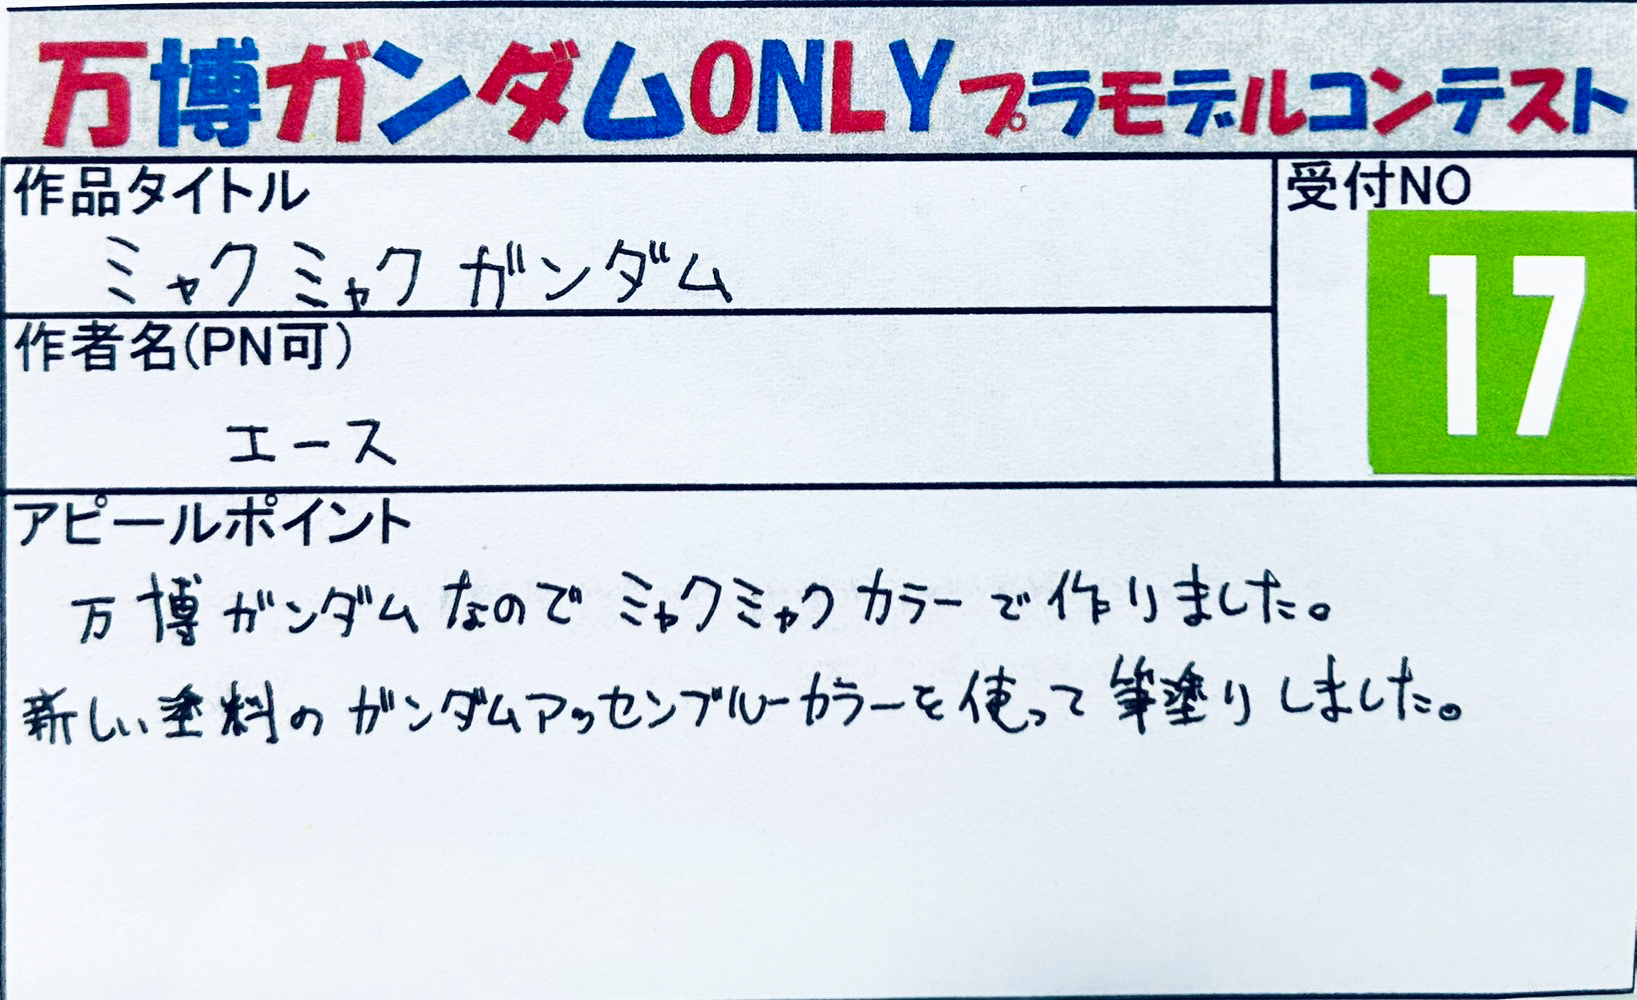 万博ガンダムONLYプラモデルコンテスト
作品タイトル
ミャクミャクガンダム
受付NO
17
作者名(PN可)
エース
アピールポイント
万博ガンダムなのでミャクミャクカラーで作りました。
新しい塗料のガンダムアッセンブルーカラーを使って筆塗りしました。